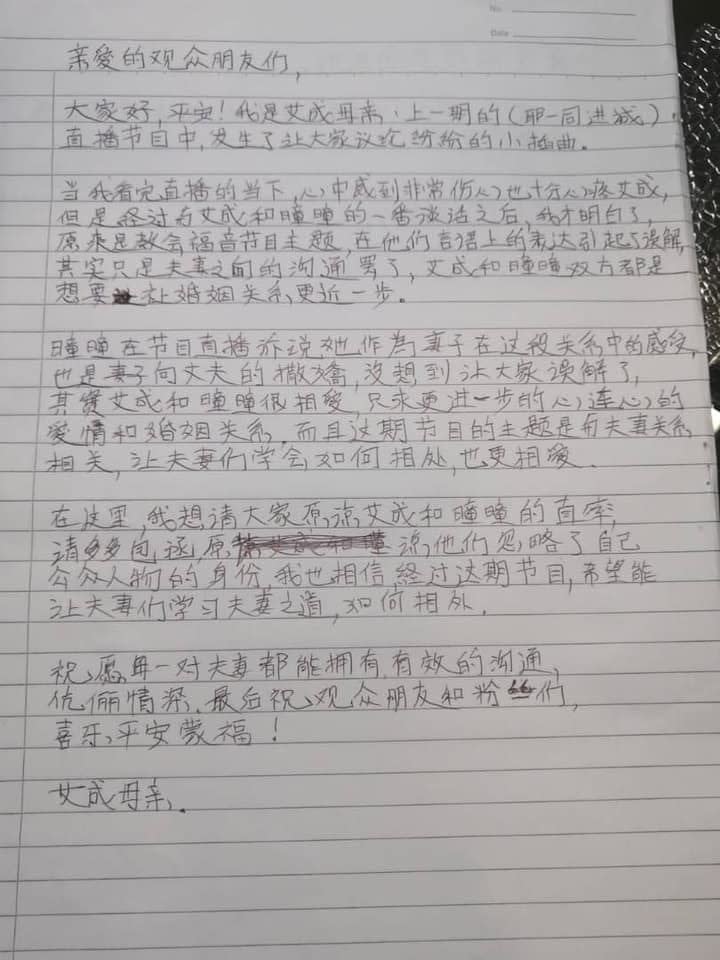 No.
Date
亲爱的观众朋友们,
大家好,平安!我是艾成母亲、上一期的(耶一同进城)
直播节目中,发生了让大家议论纷纷的小插曲。
当我看完直播的当下,心中感到非常伤心也十分心疼艾成,
但是经过与艾成和瞳瞳的一番谈话之后,我才明白了,
原来是教会福音节目主题,在他们言语上的表达引起了误解,
其实只是夫妻之间的沟通罢了,艾成和瞳瞳双方都是
想要让婚姻关系更近一步。
瞳瞳在节目直播诉说她作為妻子在这段关系中的感受,
也是妻子向丈夫的撒嬌,沒想到让大家误解了,
其實艾成和瞳瞳很相爱,只求更进一步的心连心的
愛情和婚姻关系,而且这期节目的主题是与夫妻关系
相关,让夫妻们学会如何相处,也更相愛.
在这里,我想请大家原谅艾成和瞳瞳的直率,
请多多包涵,原谅他们忽略了自己
公众人物的身份.我也相信经过这期节目,希望能
让夫妻们学习夫妻之道,如何相处.
祝愿每一对夫妻都能拥有有效的沟通,
伉俪情深.最后祝观众朋友和粉丝们,
喜乐,平安蒙福!
艾成母亲.